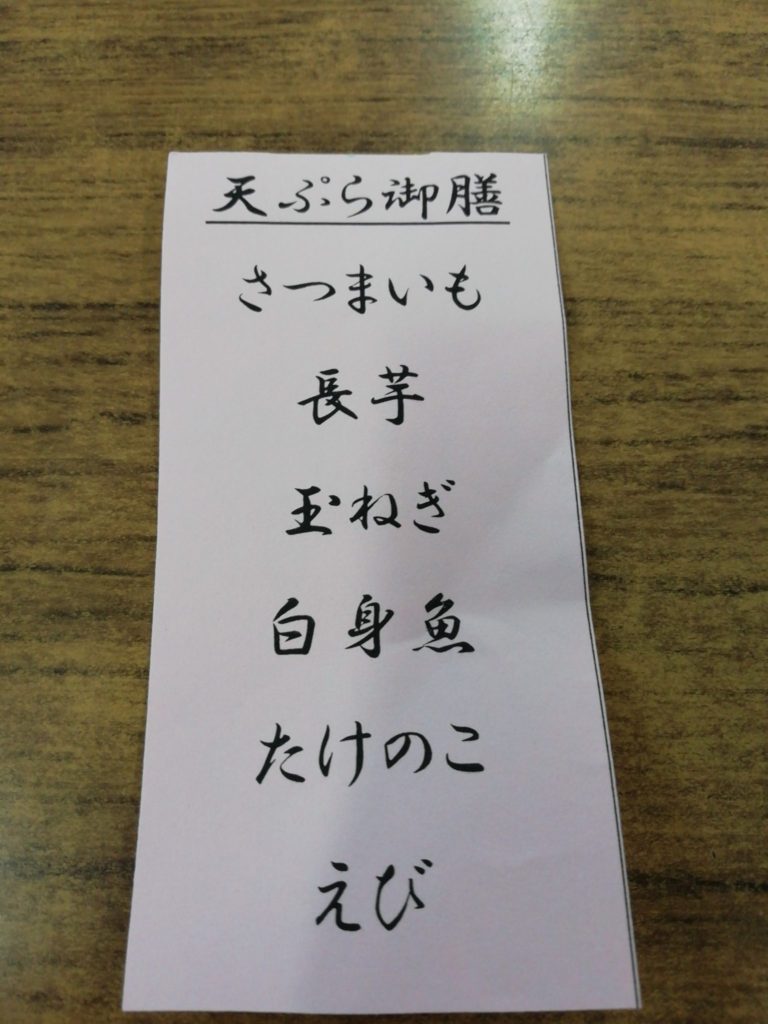 天ぷら御膳
さつまいも
長芋
玉ねぎ
白身魚
たけのこ
えび